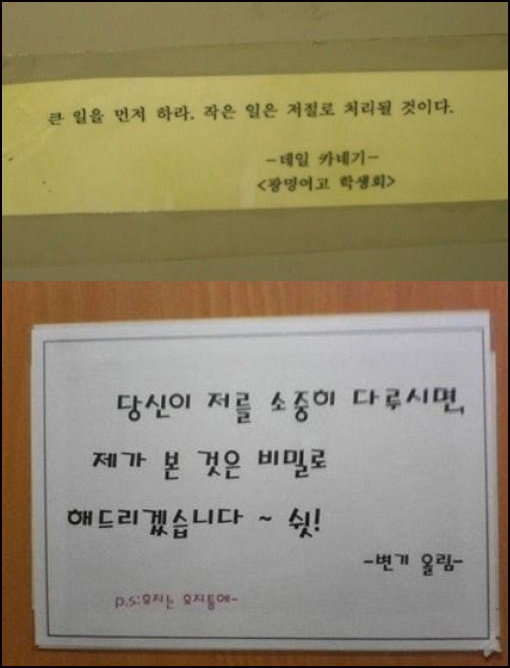 큰 일을 먼저 하라. 작은 일은 저절로 처리될 것이다.
-데일 카네기-
<광명여고 학생회>
당신이 저를 소중히 다루시면,
제가 본 것은 비밀로
해드리겠습니다 ~ 쉿!
-변기 올림-
p.s:휴지는 휴지통에~